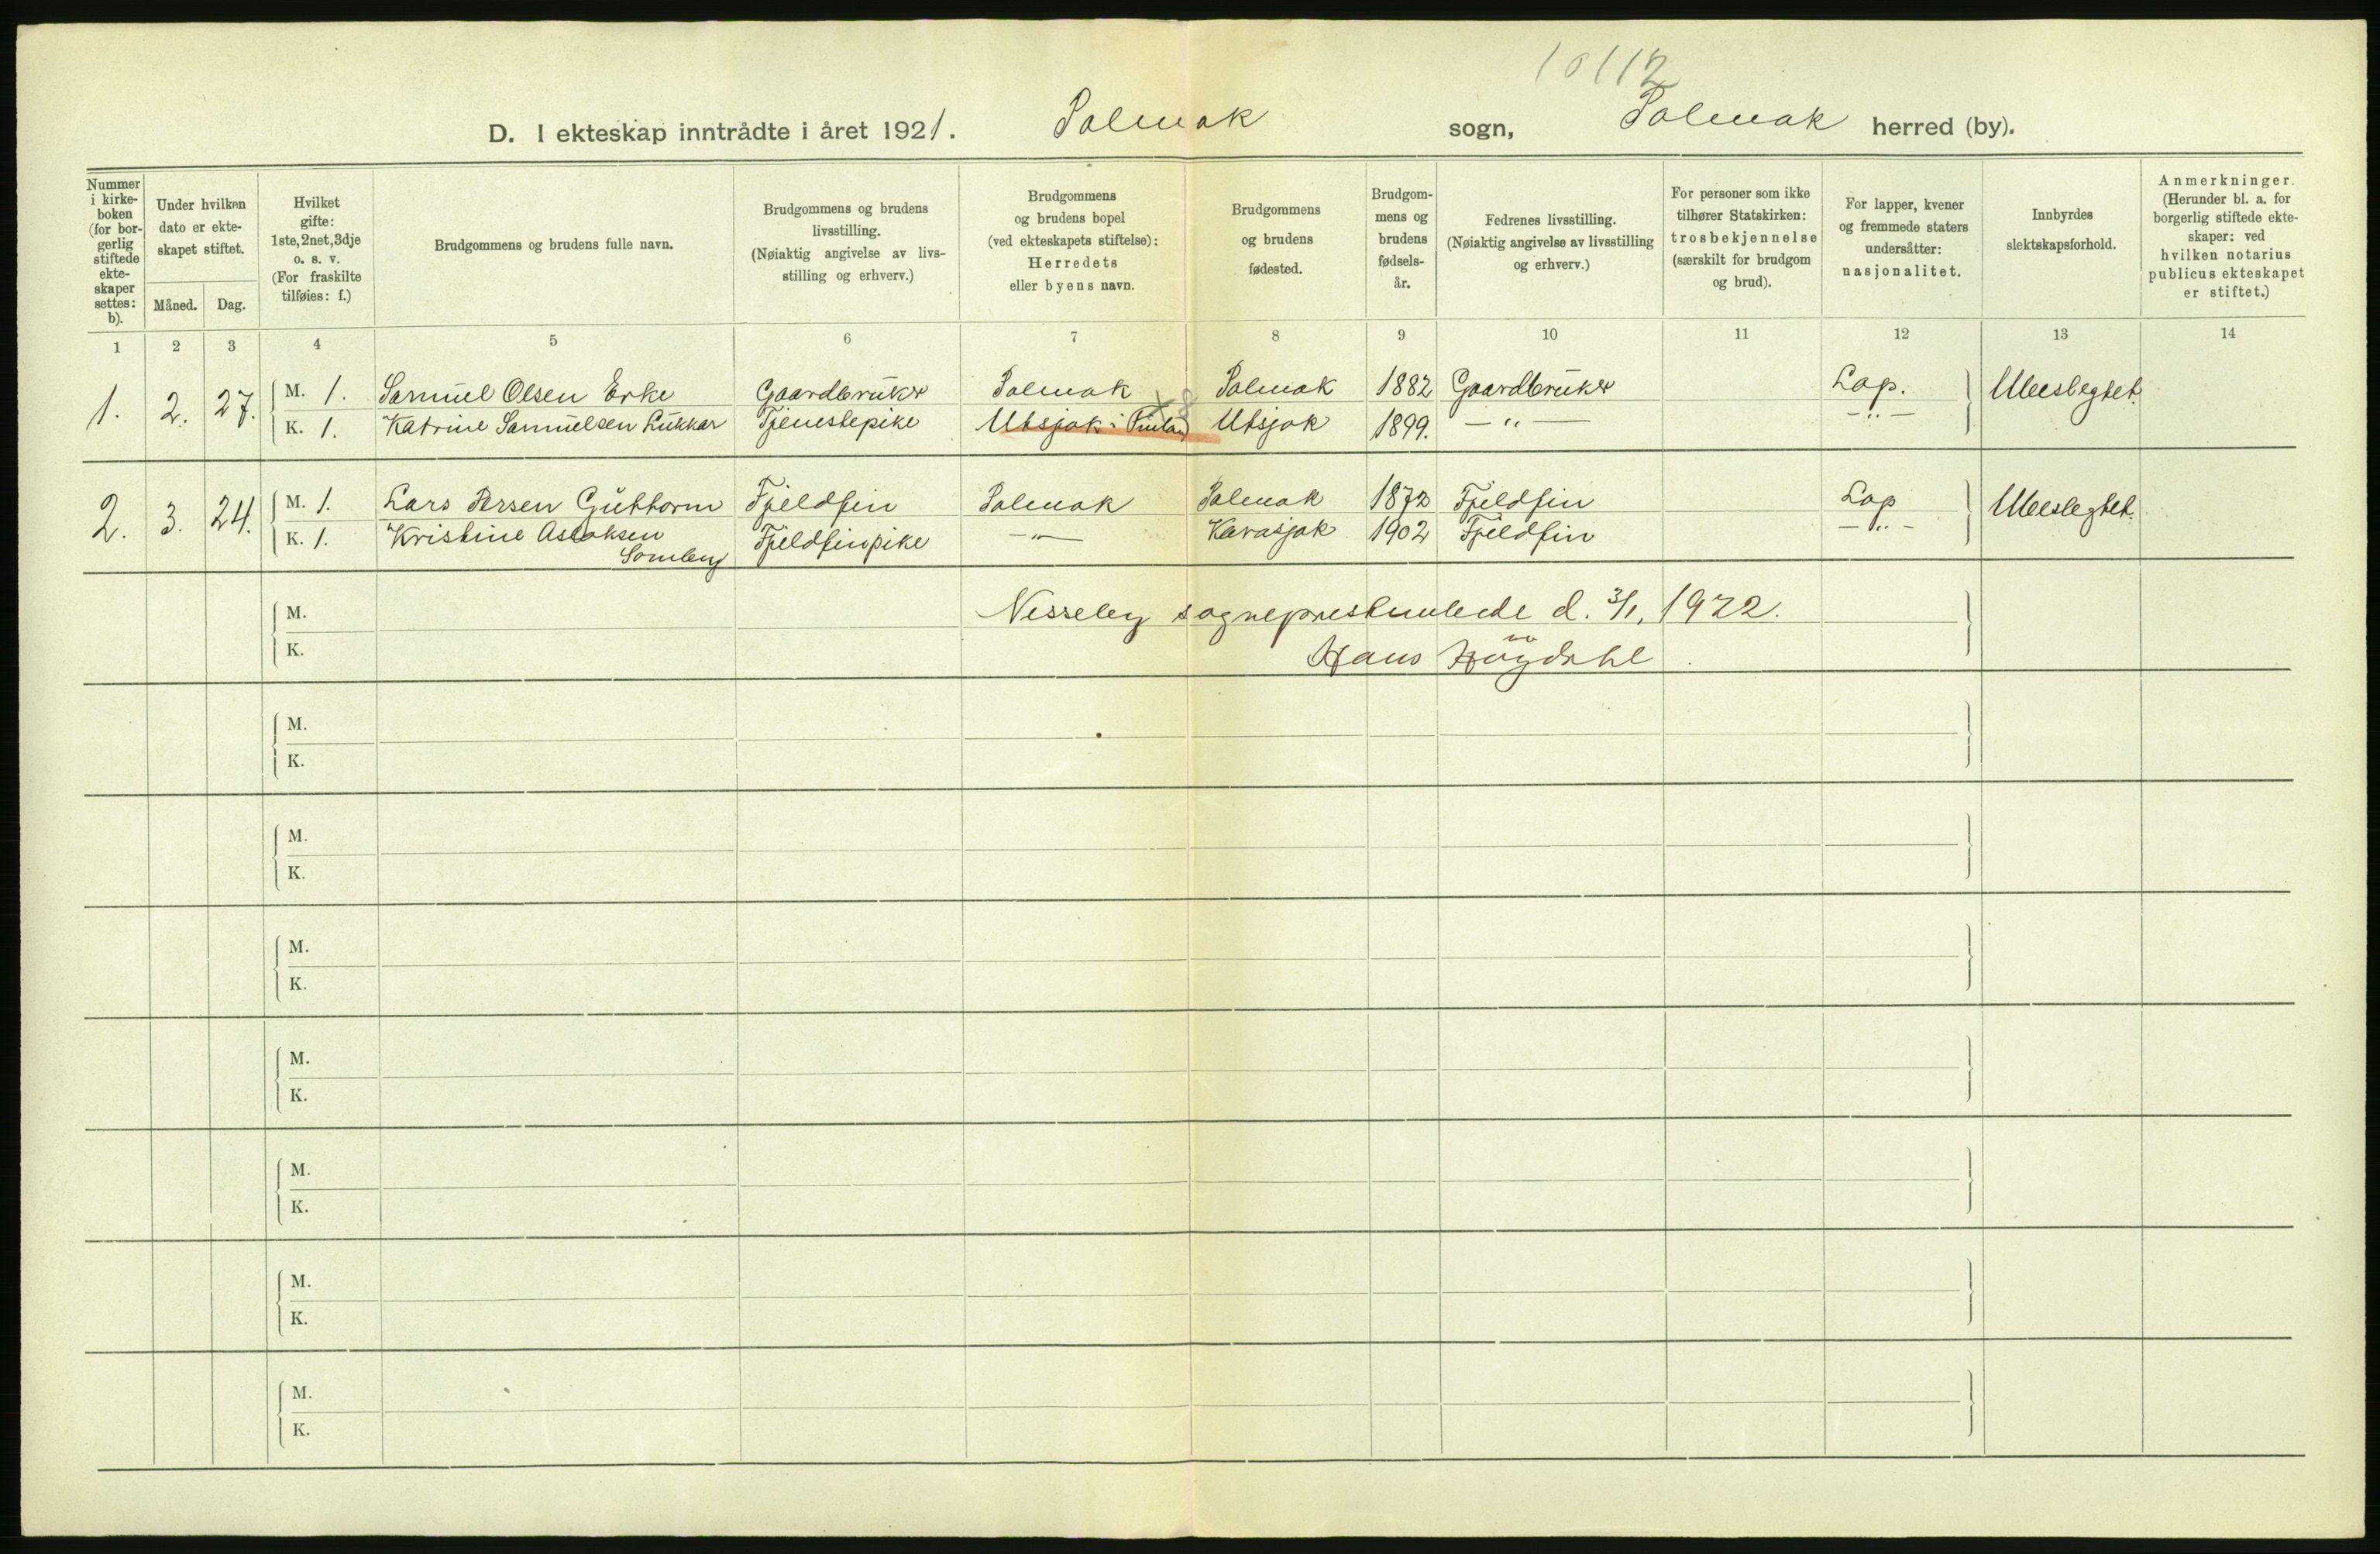 10112
D. I ekteskap inntrådte i året 1921. Polmak sogn, Polmak herred (by).
Nummer i kirkeboken (for borgerlig stiftede ekteskaper settes: b).
Under hvilken dato er ekteskapet stiftet.
Måned. Dag.
Hvilket gifte: 1ste, 2net, 3dje o. s. v. (For fraskilte tilføies: f.)
Brudgommens og brudens fulle navn.
Brudgommens og brudens livsstilling. (Nøiaktig angivelse av livsstilling og erhverv.)
Brudgommens og brudens bopel (ved ekteskapets stiftelse): Herredets eller byens navn.
Brudgommens og brudens fødested.
Brudgommens og brudens fødselsår.
Fedrenes livsstilling. (Nøiaktig angivelse av livsstilling og erhverv.)
For personer som ikke tilhører Statskirken: trosbekjennelse (særskilt for brudgom og brud).
For lapper, kvener og fremmede staters undersåtter: nasjonalitet.
Innbyrdes slektskapsforhold.
Anmerkninger. (Herunder bl. a. for borgerlig stiftede ekteskaper: ved hvilken notarius publicus ekteskapet er stiftet.)
1 2 3 4 5 6 7 8 9 10 11 12 13 14
1. 2. 27. M. 1. Samuel Olsen Erke Gaardbruker Polmak Polmak 1882 Gaardbruker Lap. Ubeslegtet.
K. 1. Katrine Samuelsen Lukkar Tjenestepike Utsjok i Finland Utsjok 1899. —"— —"—
2. 3. 24. M. 1. Lars Persen Guttorm Fjeldfin Polmak Polmak 1872 Fjeldfin Lap Ubeslegtet.
K. 1. Kristine Aslaksen Fjeldfinpike —"— Karasjok 1902 Fjeldfin —"—
Somby
M. Nesseby sogneprestembede d. 3/1, 1922.
K. Hans Høydahl
M.
K.
M.
K.
M.
K.
M.
K.
M.
K.
M.
K.
M.
K.